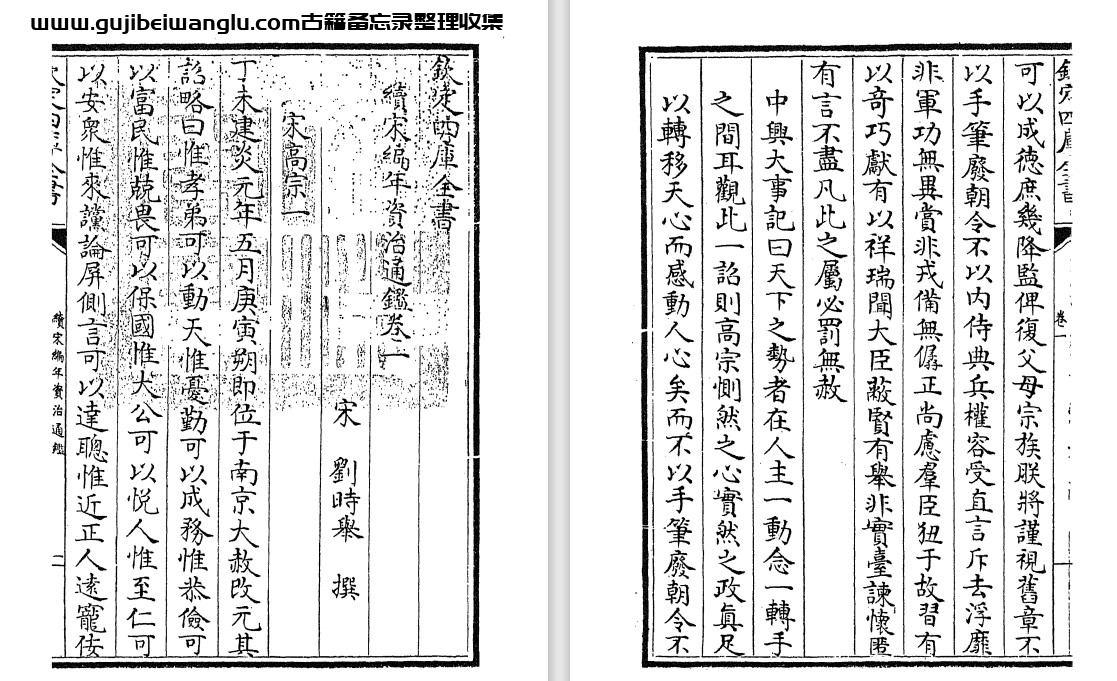 www.gujibeiwanglu.com古籍备忘录整理收集
欽定四庫全書
續宋編年資治通鑑卷一
宋 劉時舉 撰
宋高宗一
丁未建炎元年五月庚寅朔即位于南京大赦改元其
詔略曰惟孝弟可以動天惟憂勤可以成務惟恭儉可
以富民惟兢畏可以保國惟大公可以悅人惟至仁可
以安衆惟來讜論屏側言可以達聰惟近正人逺寵佞
續宋編年資治通鑑
欽定四庫全書
卷一
可以成徳庶幾降監俾復父母宗族朕將謹視舊章不
以手筆廢朝令不以内侍典兵權容受直言斥去浮靡
非軍功無異賞非戎備無僝工尚慮羣臣狃于故習有
以竒巧獻有以祥瑞聞大臣蔽賢有舉非實臺諫懷匿
有言不盡凡此之屬必罰無赦
中興大事記曰天下之勢者在人主一動念一轉手
之間耳觀此一詔則高宗惻然之心實然之政真足
以轉移天心而感動人心矣而不以手筆廢朝令不